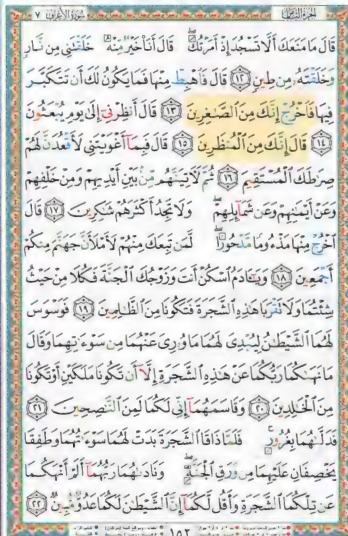 الجزء الثامن
سورة الأعراف ٧
قَالَ مَا مَنَعَكَ أَلَّا تَسْجُدَ إِذْ أَمَرْتُكَ ۖ قَالَ أَنَا۠ خَيْرٌ مِّنْهُ ۖ خَلَقْتَنِى مِن نَّارٍ
وَخَلَقْتَهُۥ مِن طِينٍ ۝١٢ قَالَ فَٱهْبِطْ مِنْهَا فَمَا يَكُونُ لَكَ أَن تَتَكَبَّرَ
فِيهَا فَٱخْرُجْ إِنَّكَ مِنَ ٱلصَّـٰغِرِينَ ۝١٣ قَالَ أَنظِرْنِىٓ إِلَىٰ يَوْمِ يُبْعَثُونَ
۝١٤ قَالَ إِنَّكَ مِنَ ٱلْمُنظَرِينَ ۝١٥ قَالَ فَبِمَآ أَغْوَيْتَنِى لَأَقْعُدَنَّ لَهُمْ
صِرَٰطَكَ ٱلْمُسْتَقِيمَ ۝١٦ ثُمَّ لَـَٔاتِيَنَّهُم مِّنۢ بَيْنِ أَيْدِيهِمْ وَمِنْ خَلْفِهِمْ
وَعَنْ أَيْمَـٰنِهِمْ وَعَن شَمَآئِلِهِمْ ۖ وَلَا تَجِدُ أَكْثَرَهُمْ شَـٰكِرِينَ ۝١٧ قَالَ
ٱخْرُجْ مِنْهَا مَذْءُومًا مَّدْحُورًا ۖ لَّمَن تَبِعَكَ مِنْهُمْ لَأَمْلَأَنَّ جَهَنَّمَ مِنكُمْ
أَجْمَعِينَ ۝١٨ وَيَـٰٓـَٔادَمُ ٱسْكُنْ أَنتَ وَزَوْجُكَ ٱلْجَنَّةَ فَكُلَا مِنْ حَيْثُ
شِئْتُمَا وَلَا تَقْرَبَا هَـٰذِهِ ٱلشَّجَرَةَ فَتَكُونَا مِنَ ٱلظَّـٰلِمِينَ ۝١٩ فَوَسْوَسَ
لَهُمَا ٱلشَّيْطَـٰنُ لِيُبْدِىَ لَهُمَا مَا وُۥرِىَ عَنْهُمَا مِن سَوْءَٰتِهِمَا وَقَالَ
مَا نَهَىٰكُمَا رَبُّكُمَا عَنْ هَـٰذِهِ ٱلشَّجَرَةِ إِلَّآ أَن تَكُونَا مَلَكَيْنِ أَوْ تَكُونَا
مِنَ ٱلْخَـٰلِدِينَ ۝٢٠ وَقَاسَمَهُمَآ إِنِّى لَكُمَا لَمِنَ ٱلنَّـٰصِحِينَ ۝٢١
فَدَلَّىٰهُمَا بِغُرُورٍ ۚ فَلَمَّا ذَاقَا ٱلشَّجَرَةَ بَدَتْ لَهُمَا سَوْءَٰتُهُمَا وَطَفِقَا
يَخْصِفَانِ عَلَيْهِمَا مِن وَرَقِ ٱلْجَنَّةِ ۖ وَنَادَىٰهُمَا رَبُّهُمَآ أَلَمْ أَنْهَكُمَا
عَن تِلْكُمَا ٱلشَّجَرَةِ وَأَقُل لَّكُمَآ إِنَّ ٱلشَّيْطَـٰنَ لَكُمَا عَدُوٌّ مُّبِينٌ ۝٢٢
١٥٢